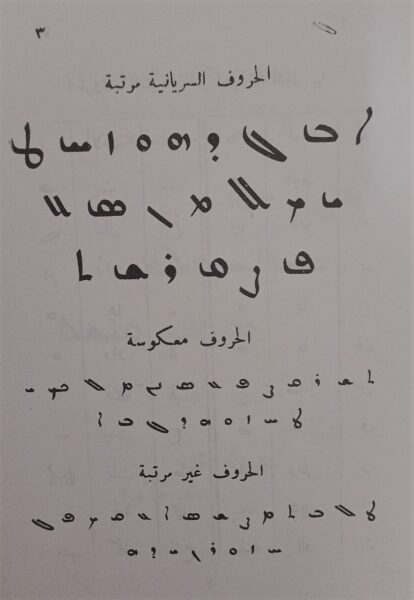 ٣
الحروف السريانية مرتبة
ܐ ܒ ܓ ܕ ܗ ܘ ܙ ܚ ܛ
ܝ ܟ ܠ ܡ ܢ ܣ ܥ
ܦ ܨ ܩ ܪ ܫ ܬ
الحروف معكوسة
ܬ ܫ ܪ ܩ ܨ ܦ ܥ ܣ ܢ ܡ ܠ ܟ ܝ
ܛ ܚ ܙ ܘ ܗ ܕ ܓ ܒ ܐ
الحروف غير مرتبة
ܛ ܠ ܒ ܬ ܡ ܨ ܫ ܣ ܐ ܥ ܩ ܟ ܦ ܓ
ܚ ܙ ܘ ܪ ܢ ܝ ܕ ܗ